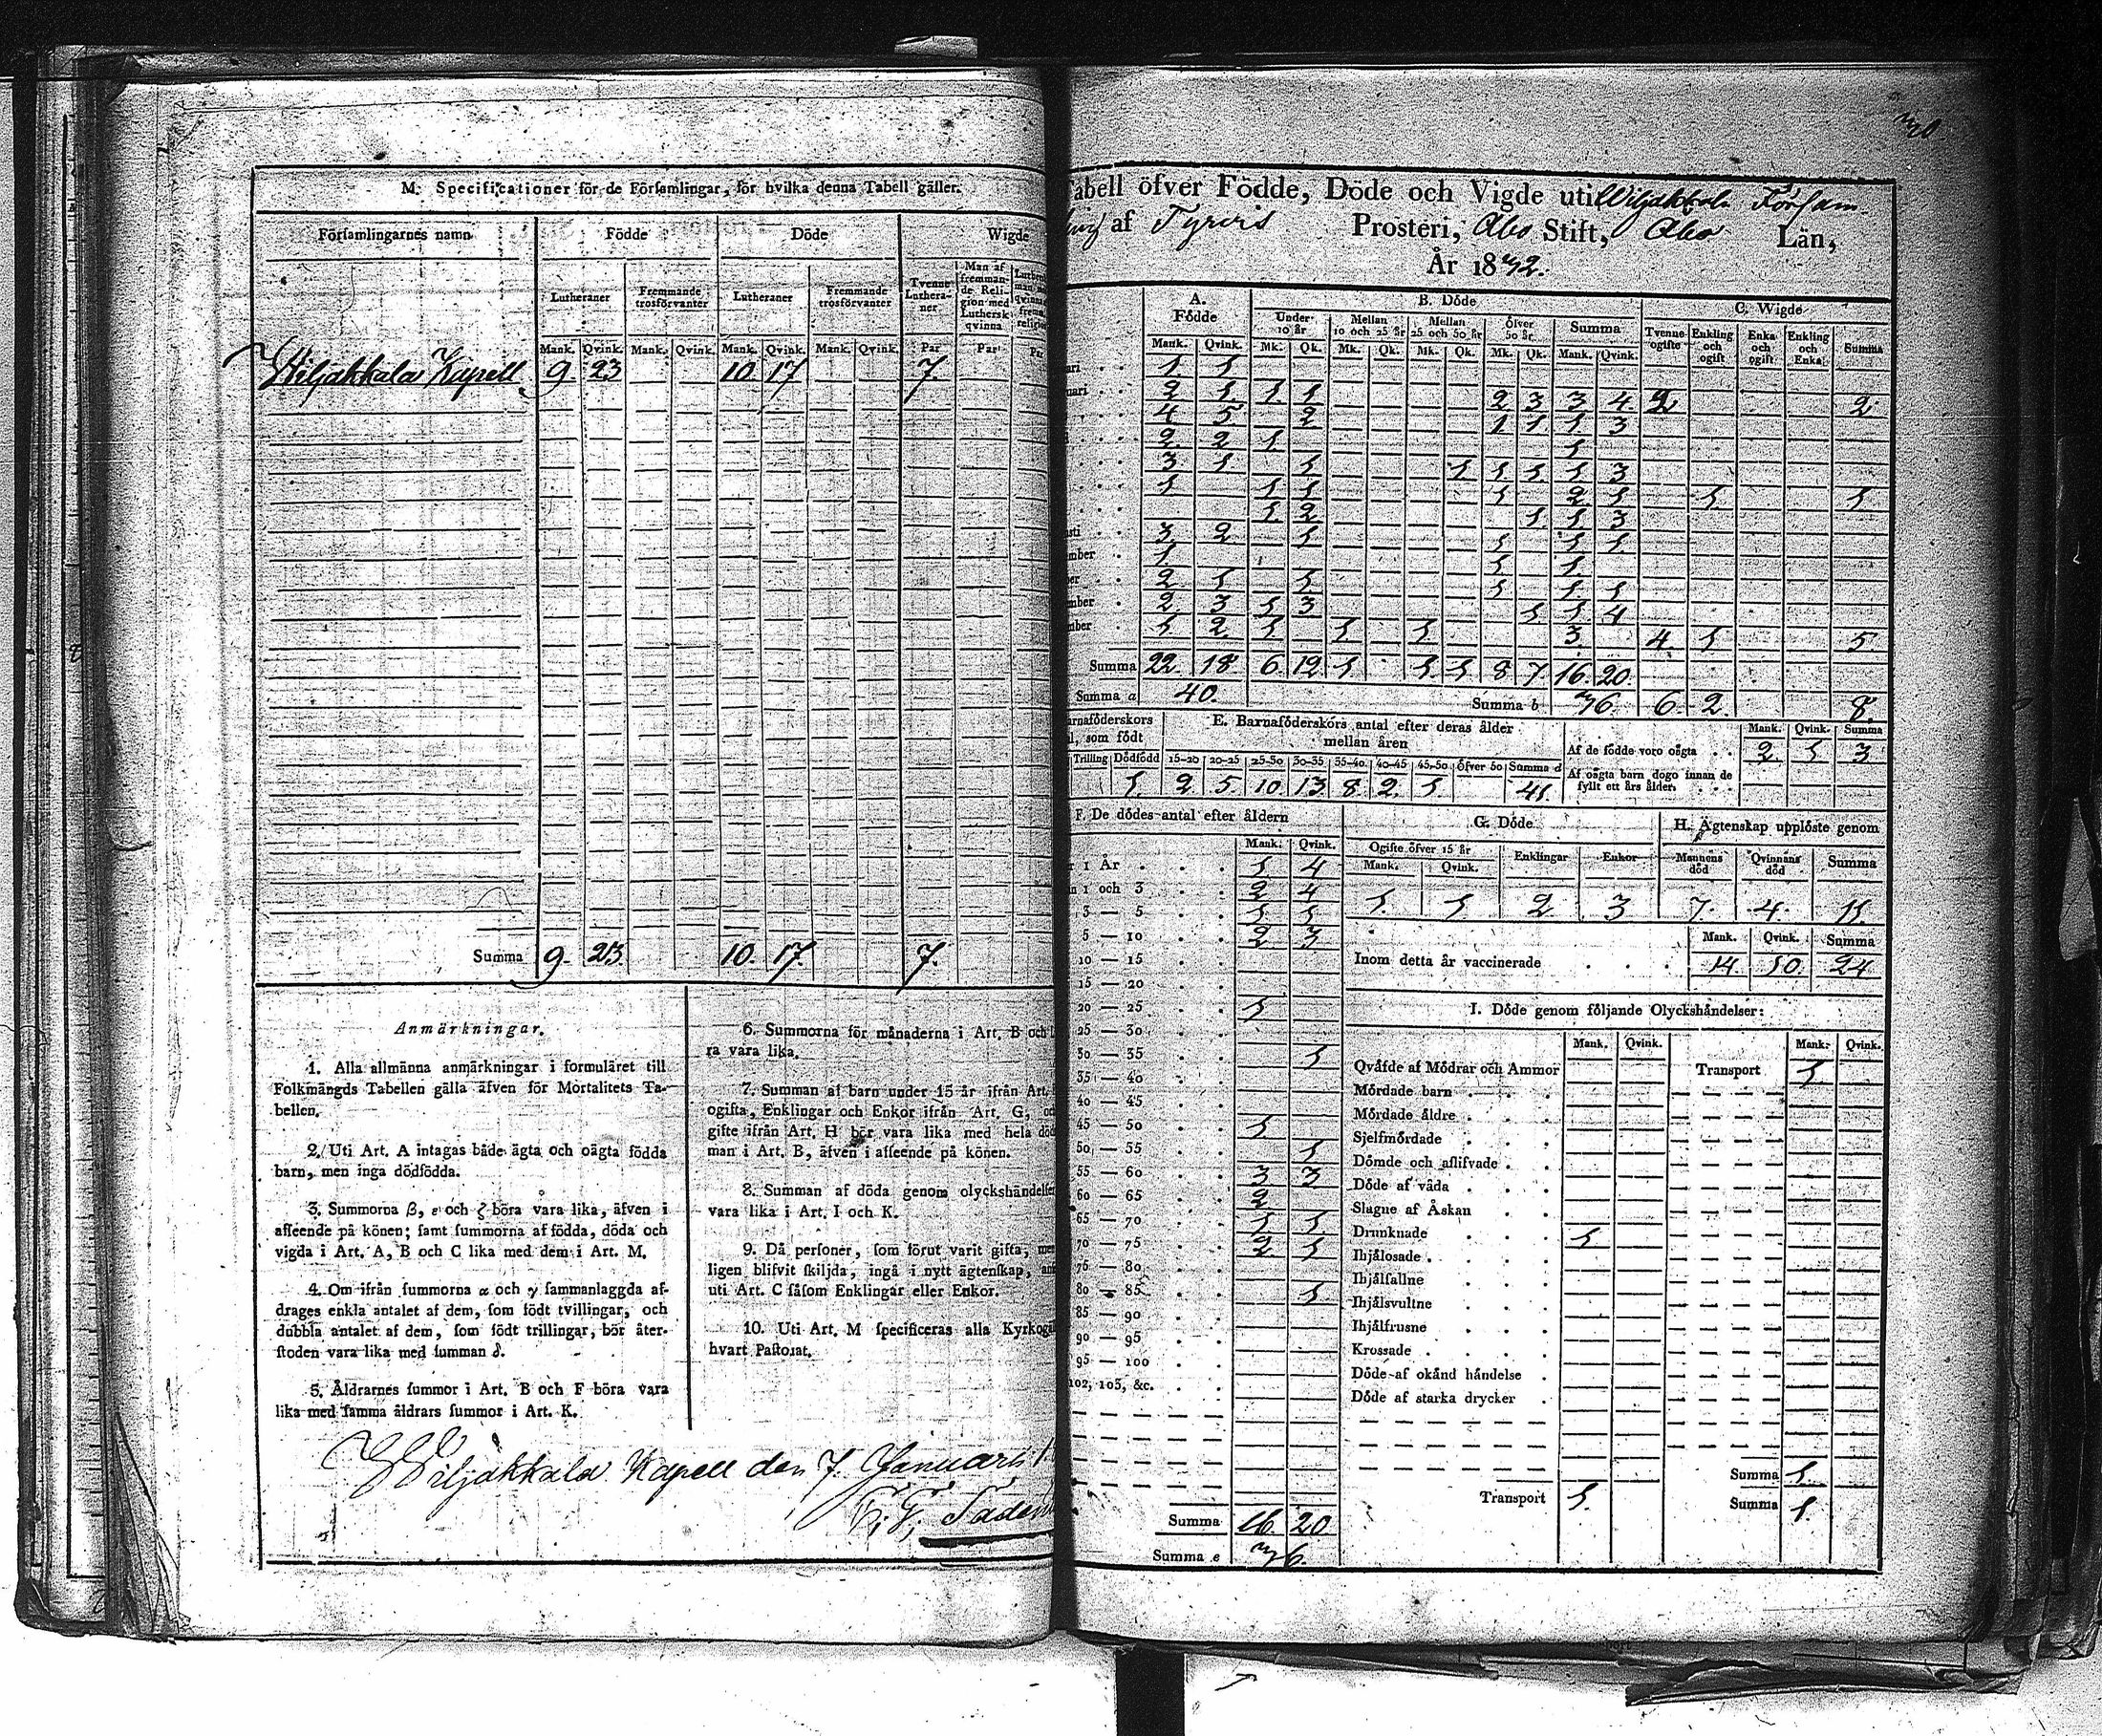 M. Specificationer för de Församlingar, för hvilka denna Tabell gäller.
Församlingarnes namn Födde Döde Wigde
Lutheraner Fremmande trosförvanter Lutheraner Fremmande trosförvanter Tvenne Lutheraner Man af fremmande Religion med Luthersk qvinna
Mank. Qvink. Mank. Qvink. Mank. Qvink. Mank. Qvink. Par Par Par
Wiljakkala Kapell 9. 23 10. 17 7.
Summa 9. 23. 10. 17. 7.
Anmärkningar.
1. Alla allmänna anmärkningar i formuläret till
Folkmängds Tabellen gälla äfven för Mortalitets Ta-
bellen.
2. Uti Art. A intagas både ägta och oägta födda
barn, men inga dödfödda.
3. Summorna β, ε och ζ böra vara lika, äfven i
afseende på könen; samt summorna af födda, döda och
vigda i Art. A, B och C lika med dem i Art. M.
4. Om ifrån summorna α och γ sammanlaggda af-
drages enkla antalet af dem, som födt tvillingar, och
dubbla antalet af dem, som födt trillingar, bör åter-
stoden vara lika med summan δ.
5. Åldrarnes summor i Art. B och F böra vara
lika med samma åldrars summor i Art. K.
6. Summorna för månaderna i Art. B och
ra vara lika.
7. Summan af barn under 15 år ifrån Art.
ogifta, Enklingar och Enkor ifrån Art. G, oc
gifte ifrån Art. H bör vara lika med hela död
man i Art. B, äfven i afseende på könen.
8. Summan af döda genom olyckshändelser
vara lika i Art. I och K.
9. Då personer, som förut varit gifta, men
ligen blifvit skiljda, ingå i nytt ägtenskap, anf
uti Art. C såsom Enklingar eller Enkor.
10. Uti Art. M specificeras alla Kyrkogä
hvart Pastorat.
Wiljakkala Kapell den 7. Januarii 1
Tabell öfver Födde, Döde och Vigde uti Wiljakkala Församling af Tyrvis Prosteri, Åbo Stift, Åbo Län,
År 1832.
A. Födde B. Döde C. Wigde
Under 10 år Mellan 10 och 25 år Mellan 25 och 50 år Öfver 50 år Summa Tvenne ogifte Enkling och ogift Enka och ogift Enkling och Enka Summa
Mank. Qvink. Mk. Qk. Mk. Qk. Mk. Qk. Mk. Qk. Mank. Qvink.
ari 1 1
uari 2 1. 1. 1 2 3 3 4. 2 2
4 5. 2 1 1 1 3
2. 2 1. 1
3 1 1 1 1 1. 1 3
1 1 1 1 2 1 1 1
1. 2 1. 1 3
sti 3. 2 1 1 1 1
mber 1 1 1
er 2 1 1 1 1. 1
mber 2 3 1 3 1 1 4
mber 1 2 1 1 1 3. 4. 1 5.
Summa 22. 18. 6. 12. 1 1. 1 8 7. 16. 20.
Summa a 40. Summa b 36. 6. 2. 8.
arnaföderskors
l, som födt
Trilling Dödfödd
1.
E. Barnaföderskors antal efter deras ålder
mellan åren
15-20 20-25 25-30 30-35 35-40. 40-45 45-50 Öfver 50 Summa d
2. 5. 10. 13. 8. 2. 1. 41.
Mank. Qvink. Summa
Af de födde voro oägta 2. 1 3
Af oägta barn dogo innan de
fyllt ett års ålder.
F. De dödes antal efter åldern
Mank. Qvink.
r 1 År 1 4
n 1 och 3 2 4
3 — 5 1 1
5 — 10 2 3
10 — 15
15 — 20
20 — 25 1
25 — 30
30 — 35 1
35 — 40
40 — 45
45 — 50 1
50 — 55 1
55 — 60 3 3
60 — 65 2
65 — 70 1 1
70 — 75 2 1
75 — 80
80 — 85 1
85 — 90
90 — 95
95 — 100
102, 103, &c.
Summa 16. 20
Summa e 36.
G. Döde
Ogifte öfver 15 år Enklingar Enkor
Mank. Qvink.
1. 1 2 3
H. Ägtenskap upplöste genom
Mannens död Qvinnans död Summa
7. 4. 11.
Mank. Qvink. Summa
Inom detta år vaccinerade 14. 10. 24
I. Döde genom följande Olyckshändelser:
Mank. Qvink. Mank. Qvink.
Qväfde af Mödrar och Ammor Transport 1
Mördade barn
Mördade äldre
Sjelfmördade
Dömde och aflifvade
Döde af våda
Slagne af Åskan
Drunknade 1
Ihjälosade
Ihjälfallne
Ihjälsvultne
Ihjälfrusne
Krossade
Döde af okänd händelse
Döde af starka drycker
Summa 1.
Transport 1. Summa 1.